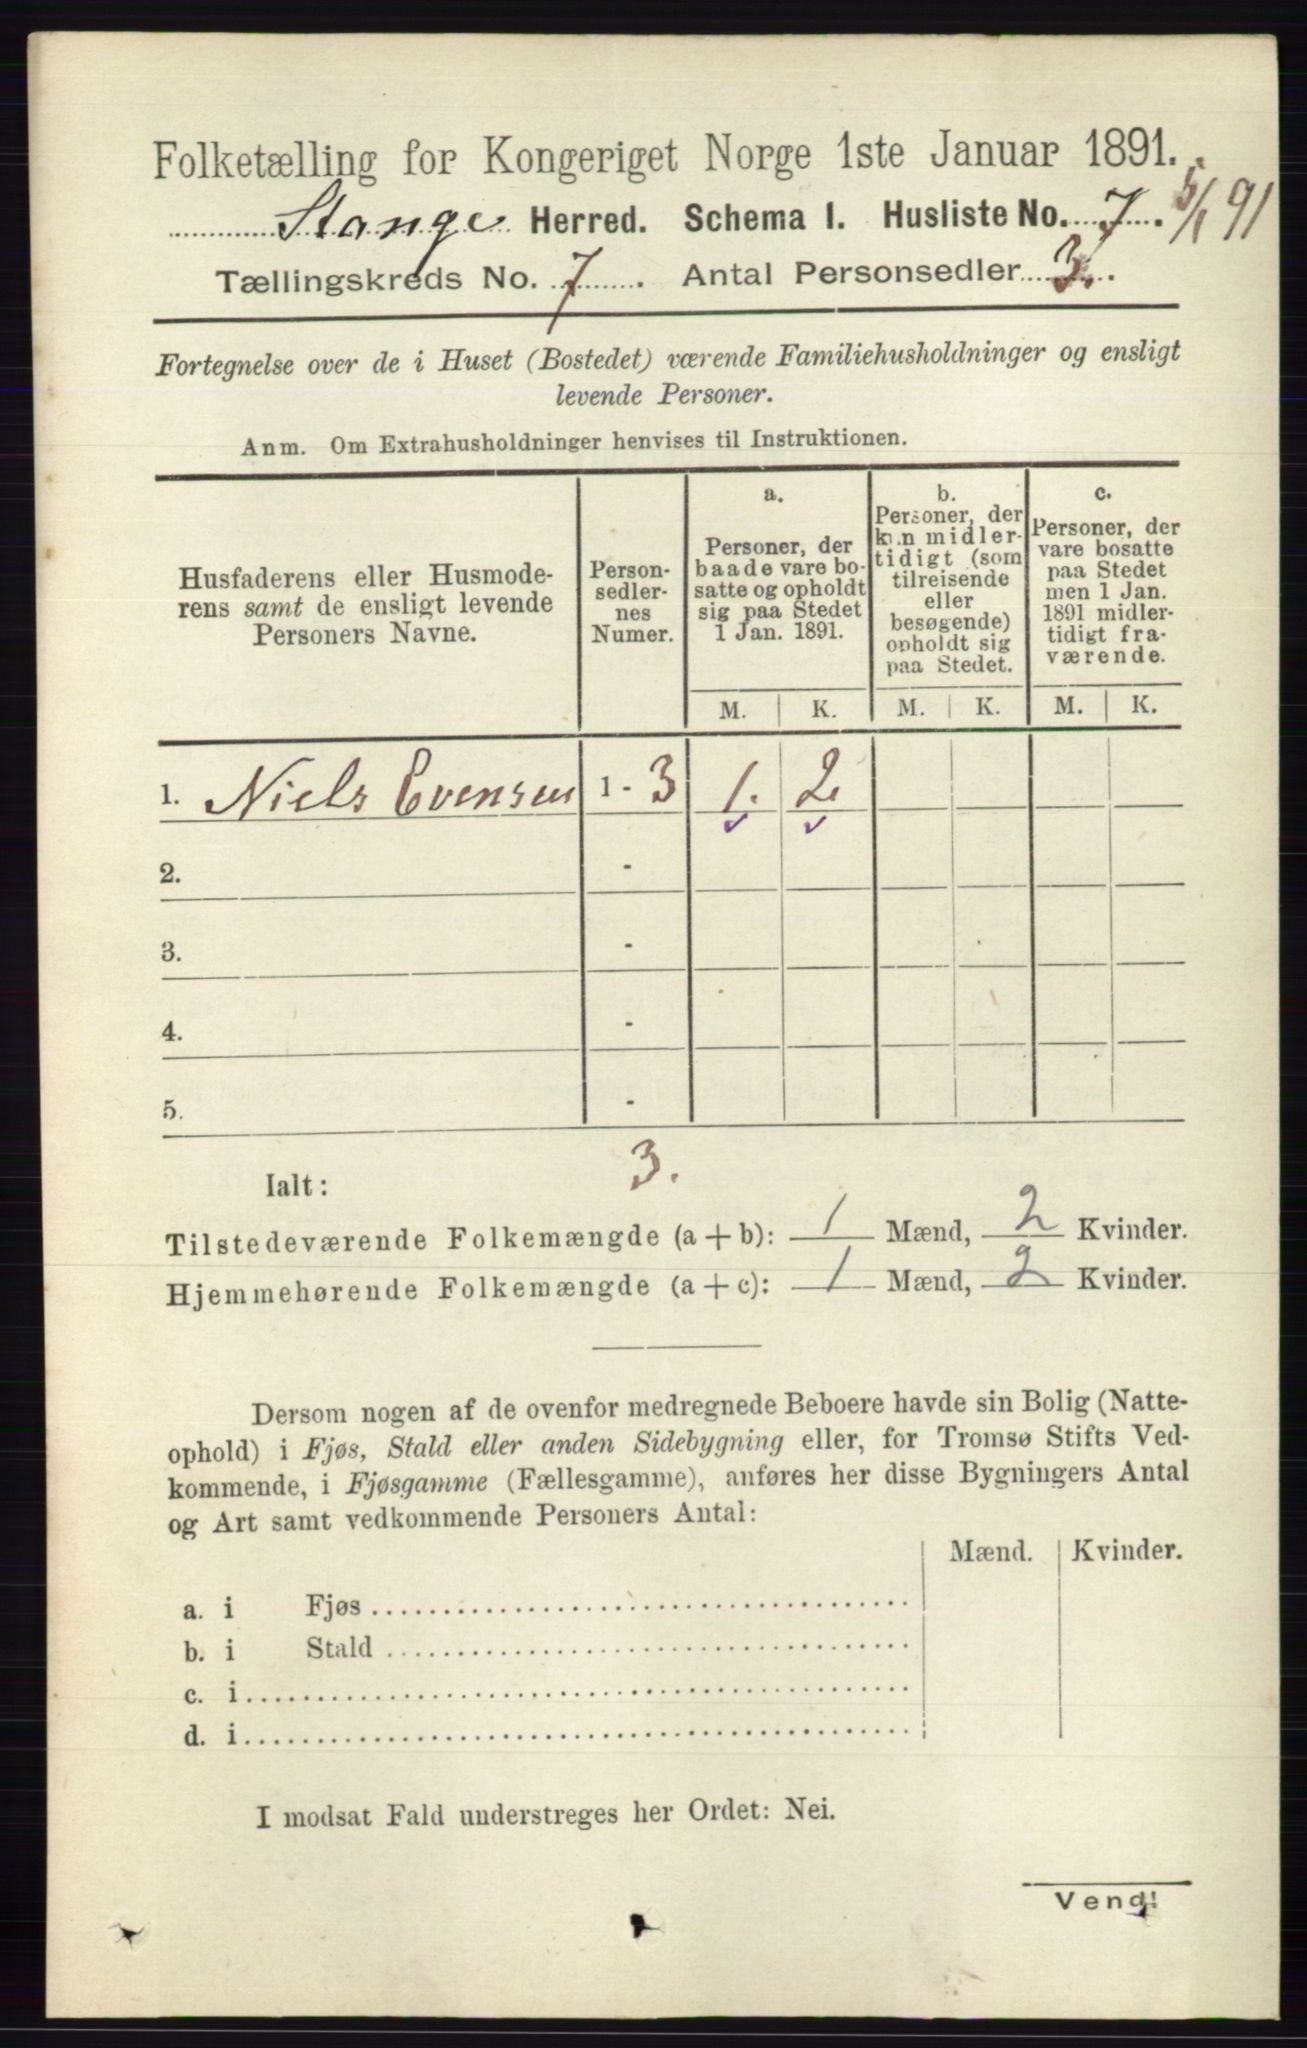 Folketælling for Kongeriget Norge 1ste Januar 1891.
Stange Herred. Schema I. Husliste No. 7. 5/1 91
Tællingskreds No. 7. Antal Personsedler 3.
Fortegnelse over de i Huset (Bostedet) værende Familiehusholdninger og ensligt
levende Personer.
Anm. Om Extrahusholdninger henvises til Instruktionen.
Husfaderens eller Husmode-
rens samt de ensligt levende
Personers Navne.
Person-
sedler-
nes
Numer.
a.
Personer, der
baade vare bo-
satte og opholdt
sig paa Stedet
1 Jan. 1891.
b.
Personer, der
kun midler-
tidigt (som
tilreisende
eller
besøgende)
opholdt sig
paa Stedet.
c.
Personer, der
vare bosatte
paa Stedet
men 1 Jan.
1891 midler-
tidigt fra-
værende.
M. K. M. K. M. K.
1. Niels Evensen 1 - 3 1. 2.
2. -
3. -
4. -
5. -
Ialt: 3.
Tilstedeværende Folkemængde (a + b): 1 Mænd, 2 Kvinder.
Hjemmehørende Folkemængde (a + c): 1 Mænd, 2 Kvinder.
Dersom nogen af de ovenfor medregnede Beboere havde sin Bolig (Natte-
ophold) i Fjøs, Stald eller anden Sidebygning eller, for Tromsø Stifts Ved-
kommende, i Fjøsgamme (Fællesgamme), anføres her disse Bygningers Antal
og Art samt vedkommende Personers Antal:
Mænd. Kvinder.
a. i Fjøs
b. i Stald
c. i
d. i
I modsat Fald understreges her Ordet: Nei.
Vend!